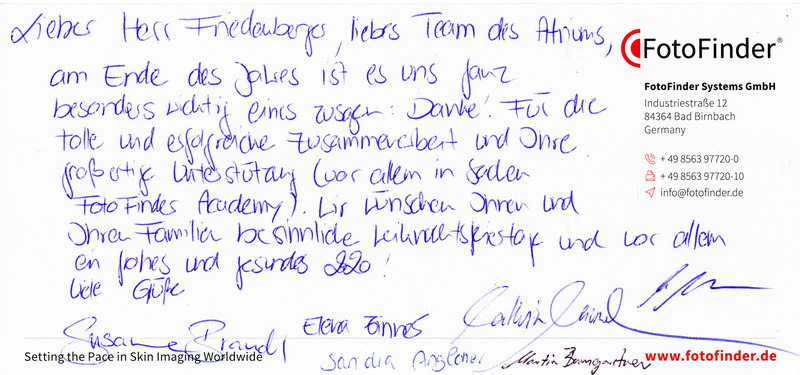 Lieber Herr Friedenberger, liebes Team des Atriums,
am Ende des Jahres ist es uns ganz
besonders wichtig eines zusagen: Danke! Für die
tolle und erfolgreiche Zusammenarbeit und Ihre
großartige Unterstützung (vor allem in Sachen
FotoFinder Academy). Wir wünschen Ihnen und
Ihren Familien besinnliche Weihnachtsfeiertage und vor allem
ein frohes und gesundes 2020!
Viele Grüße
Susanne Brandl
Elena
Sandra
Martin Baumgartner
FotoFinder®
FotoFinder Systems GmbH
Industriestraße 12
84364 Bad Birnbach
Germany
+ 49 8563 97720-0
+ 49 8563 97720-10
info@fotofinder.de
Setting the Pace in Skin Imaging Worldwide
www.fotofinder.de